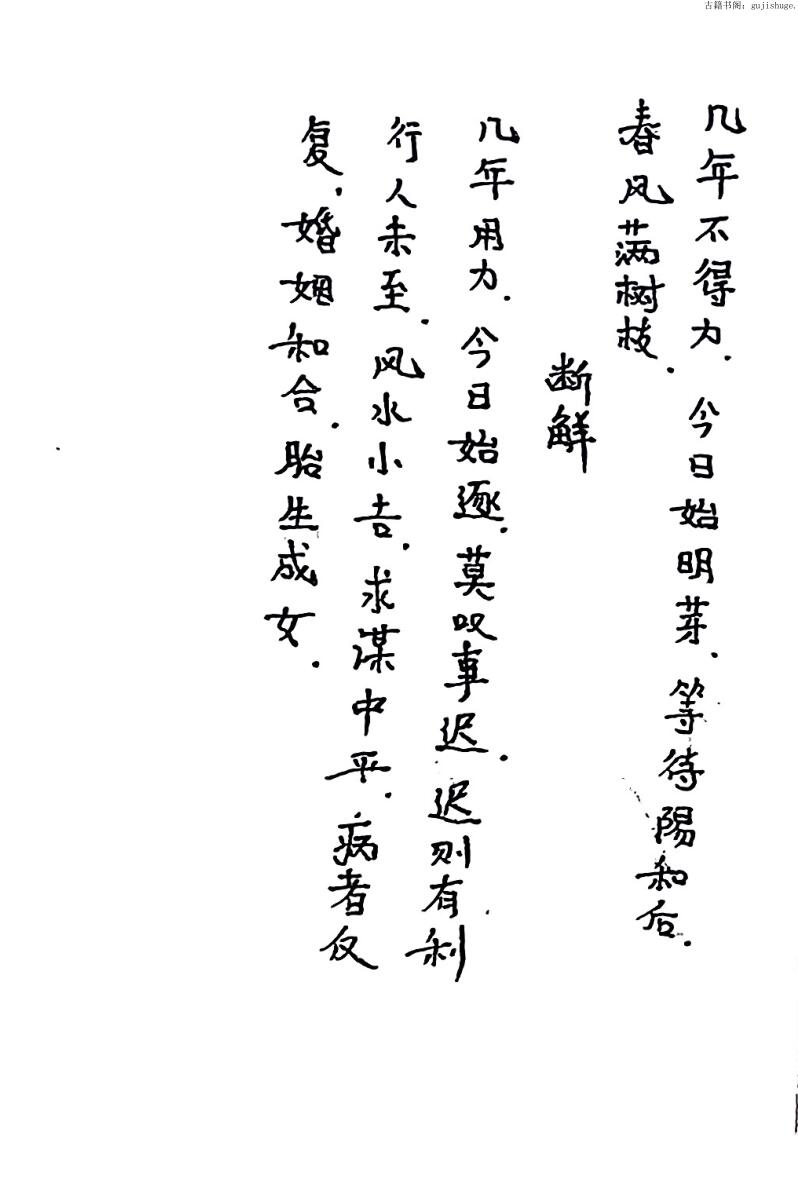 古籍书阁：gujishuge.
几年不得力．今日始明芽．等待陽和后．
春风满树枝．
断解
几年用力．今日始逐．莫叹事迟．迟则有利
行人未至．风水小吉．求谋中平．病者仅
复．婚姻和合．胎生成女．